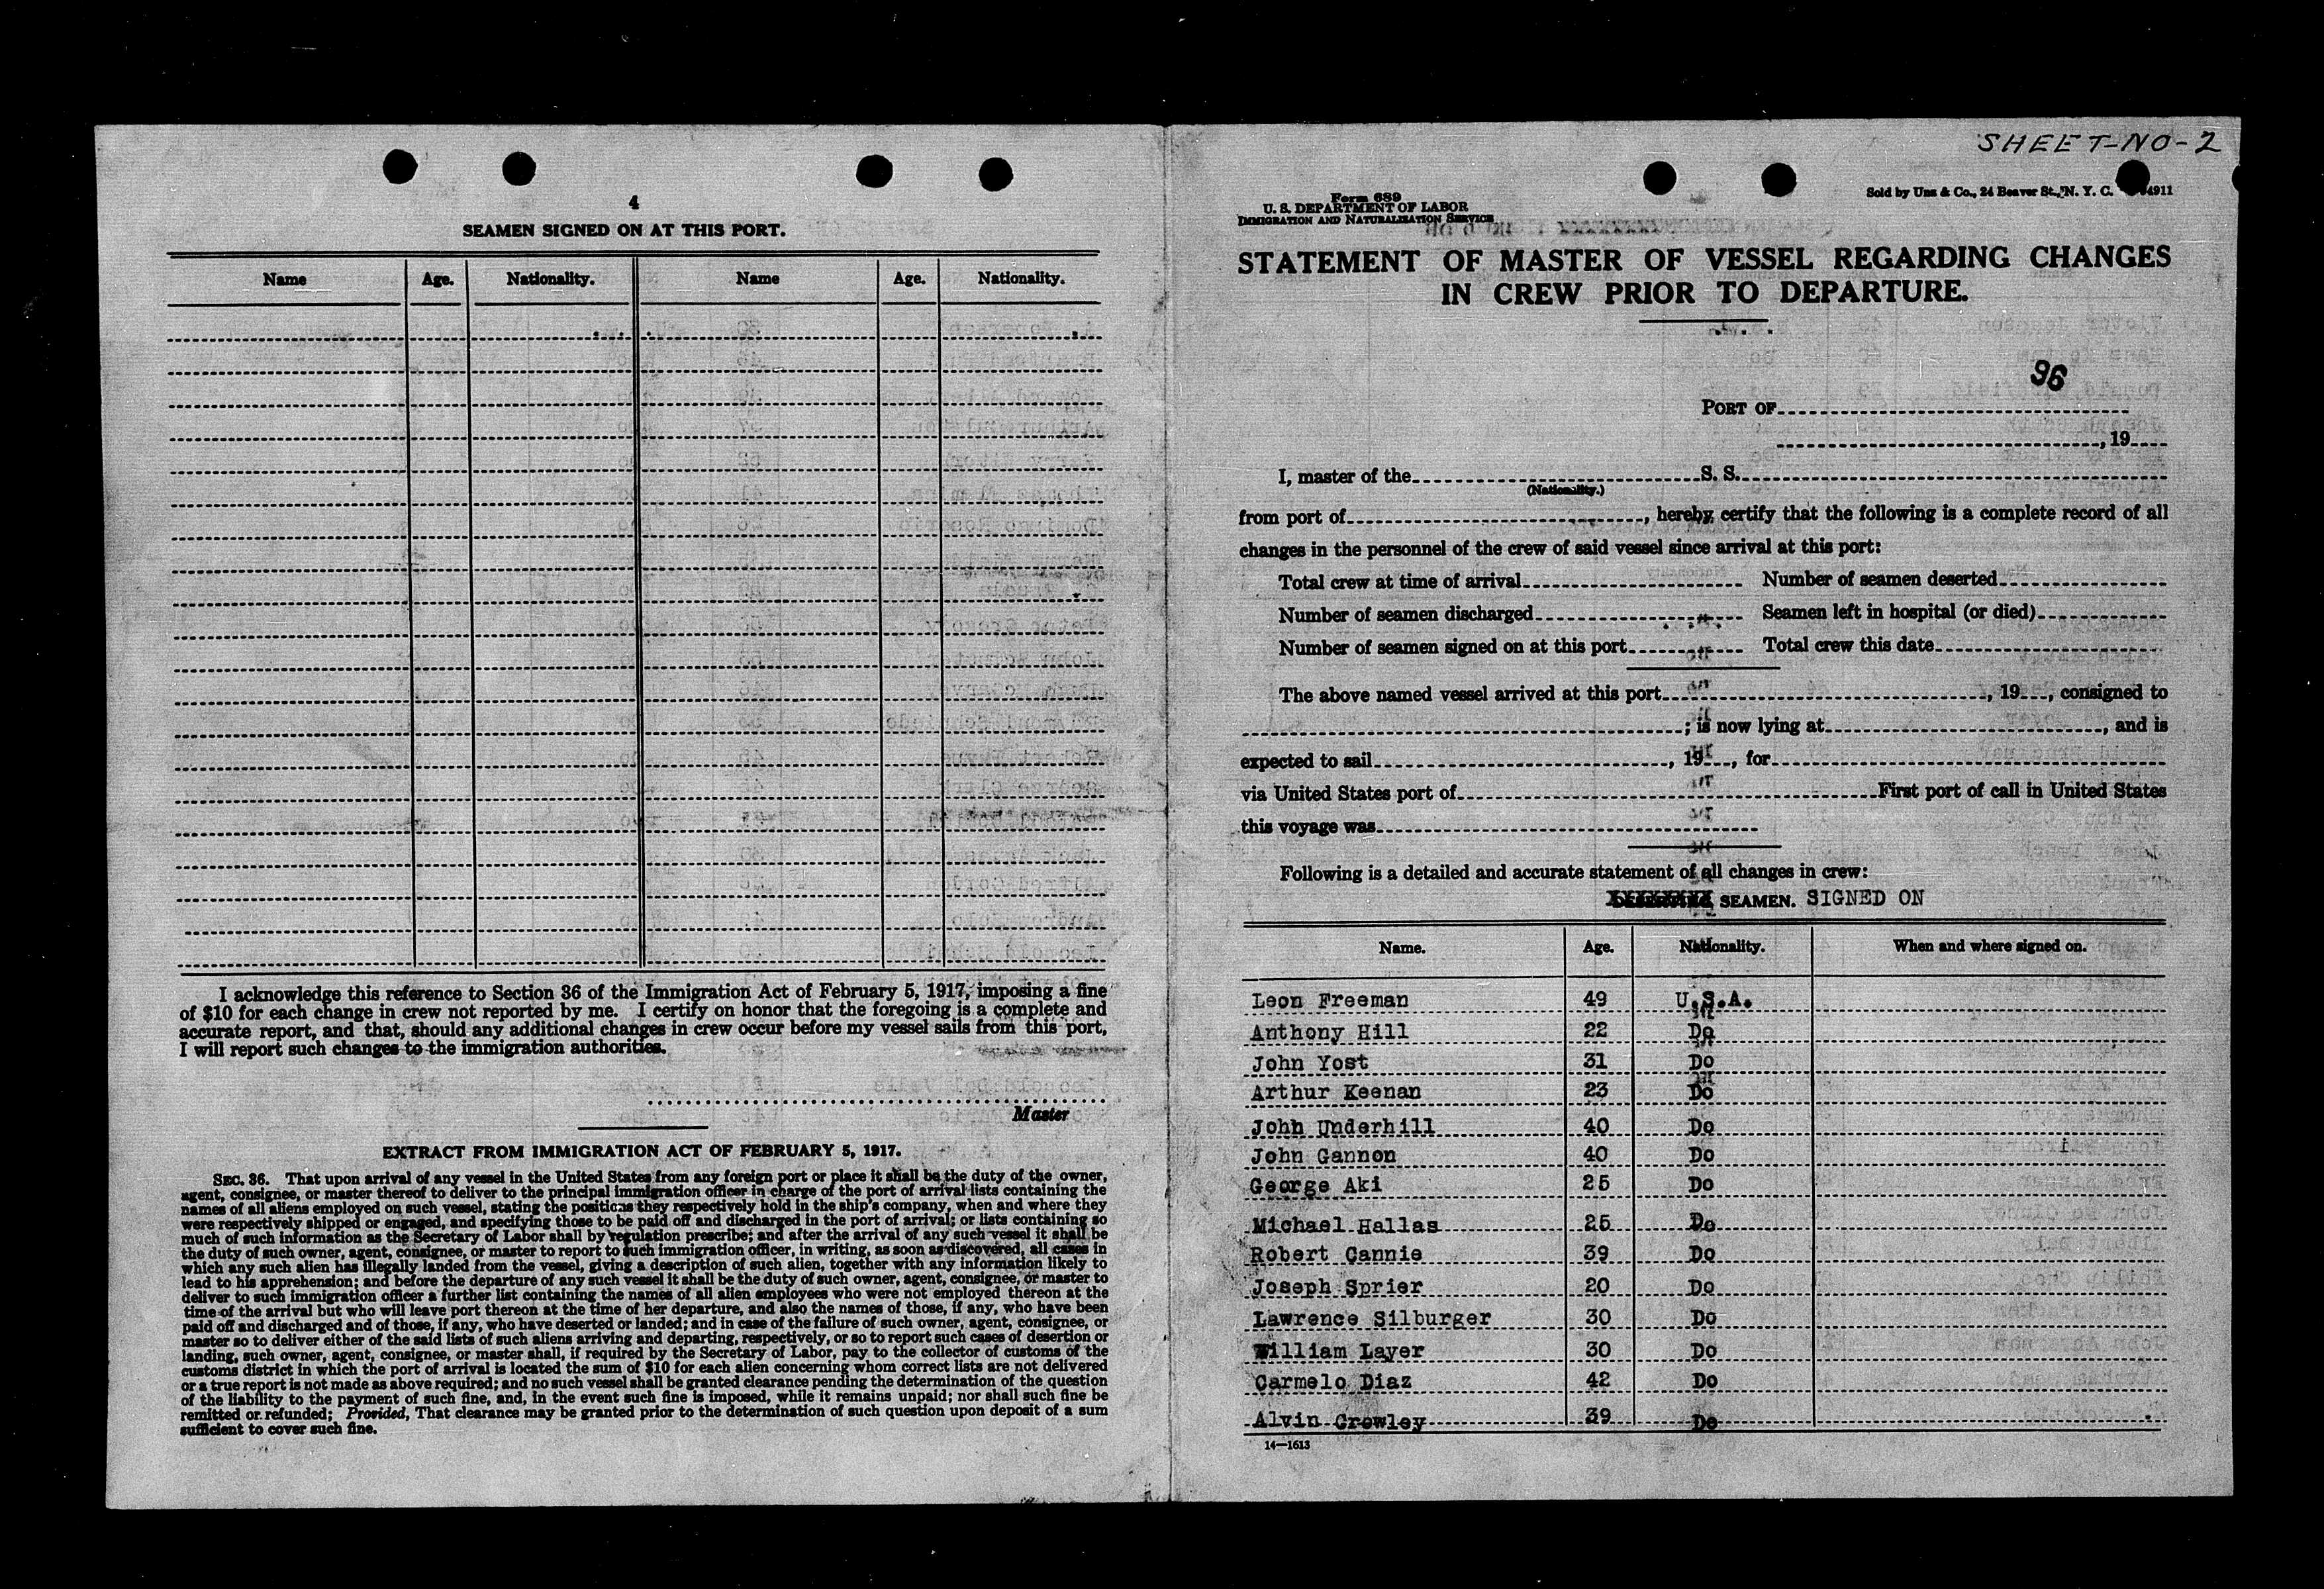 4
SEAMEN SIGNED ON AT THIS PORT.
Name Age. Nationality. Name Age. Nationality.
I acknowledge this reference to Section 36 of the Immigration Act of February 5, 1917, imposing a fine
of $10 for each change in crew not reported by me. I certify on honor that the foregoing is a complete and
accurate report, and that, should any additional changes in crew occur before my vessel sails from this port,
I will report such changes to the immigration authorities.
Master
EXTRACT FROM IMMIGRATION ACT OF FEBRUARY 5, 1917.
SEC. 36. That upon arrival of any vessel in the United States from any foreign port or place it shall be the duty of the owner,
agent, consignee, or master thereof to deliver to the principal immigration officer in charge of the port of arrival lists containing the
names of all aliens employed on such vessel, stating the positions they respectively hold in the ship's company, when and where they
were respectively shipped or engaged, and specifying those to be paid off and discharged in the port of arrival; or lists containing so
much of such information as the Secretary of Labor shall by regulation prescribe; and after the arrival of any such vessel it shall be
the duty of such owner, agent, consignee, or master to report to such immigration officer, in writing, as soon as discovered, all cases in
which any such alien has illegally landed from the vessel, giving a description of such alien, together with any information likely to
lead to his apprehension; and before the departure of any such vessel it shall be the duty of such owner, agent, consignee, or master to
deliver to such immigration officer a further list containing the names of all alien employees who were not employed thereon at the
time of the arrival but who will leave port thereon at the time of her departure, and also the names of those, if any, who have been
paid off and discharged and of those, if any, who have deserted or landed; and in case of the failure of such owner, agent, consignee, or
master so to deliver either of the said lists of such aliens arriving and departing, respectively, or so to report such cases of desertion or
landing, such owner, agent, consignee, or master shall, if required by the Secretary of Labor, pay to the collector of customs of the
customs district in which the port of arrival is located the sum of $10 for each alien concerning whom correct lists are not delivered
or a true report is not made as above required; and no such vessel shall be granted clearance pending the determination of the question
of the liability to the payment of such fine, and, in the event such fine is imposed, while it remains unpaid; nor shall such fine be
remitted or refunded; Provided, That clearance may be granted prior to the determination of such question upon deposit of a sum
sufficient to cover such fine.
SHEET-NO-2
Form 689
U. S. DEPARTMENT OF LABOR
IMMIGRATION AND NATURALIZATION SERVICE
Sold by Unz & Co., 24 Beaver St., N. Y. C. 4911
STATEMENT OF MASTER OF VESSEL REGARDING CHANGES
IN CREW PRIOR TO DEPARTURE.
96
PORT OF
, 19
I, master of the S. S.
(Nationality.)
from port of , hereby certify that the following is a complete record of all
changes in the personnel of the crew of said vessel since arrival at this port:
Total crew at time of arrival Number of seamen deserted
Number of seamen discharged Seamen left in hospital (or died)
Number of seamen signed on at this port Total crew this date
The above named vessel arrived at this port , 19 , consigned to
; is now lying at , and is
expected to sail , 19 , for
via United States port of First port of call in United States
this voyage was
Following is a detailed and accurate statement of all changes in crew:
SEAMEN. SIGNED ON
Name. Age. Nationality. When and where signed on.
Leon Freeman 49 U.S.A.
Anthony Hill 22 Do
John Yost 31 Do
Arthur Keenan 23 Do
John Underhill 40 Do
John Gannon 40 Do
George Aki 25 Do
Michael Hallas 25 Do
Robert Cannie 39 Do
Joseph Sprier 20 Do
Lawrence Silburger 30 Do
William Layer 30 Do
Carmelo Diaz 42 Do
Alvin Crowley 39 Do
14—1613